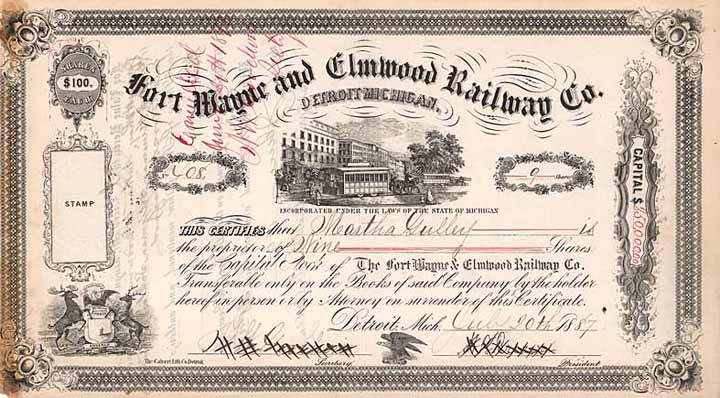 SHARES
$100.
EACH
Fort Wayne and Elmwood Railway Co.
DETROIT MICHIGAN.
408
9 Shares
STAMP
CAPITAL $250,000.00
INCORPORATED UNDER THE LAWS OF THE STATE OF MICHIGAN
THIS CERTIFIES that Martha Gulley is
the proprietor of Nine Shares
of the Capital Stock of The Fort Wayne & Elmwood Railway Co.
Transferable only on the Books of said Company by the holder
hereof in person or by Attorney on surrender of this Certificate.
Detroit, Mich. July 20th 1887
Secretary.
President.
The Calvert Lith Co. Detroit